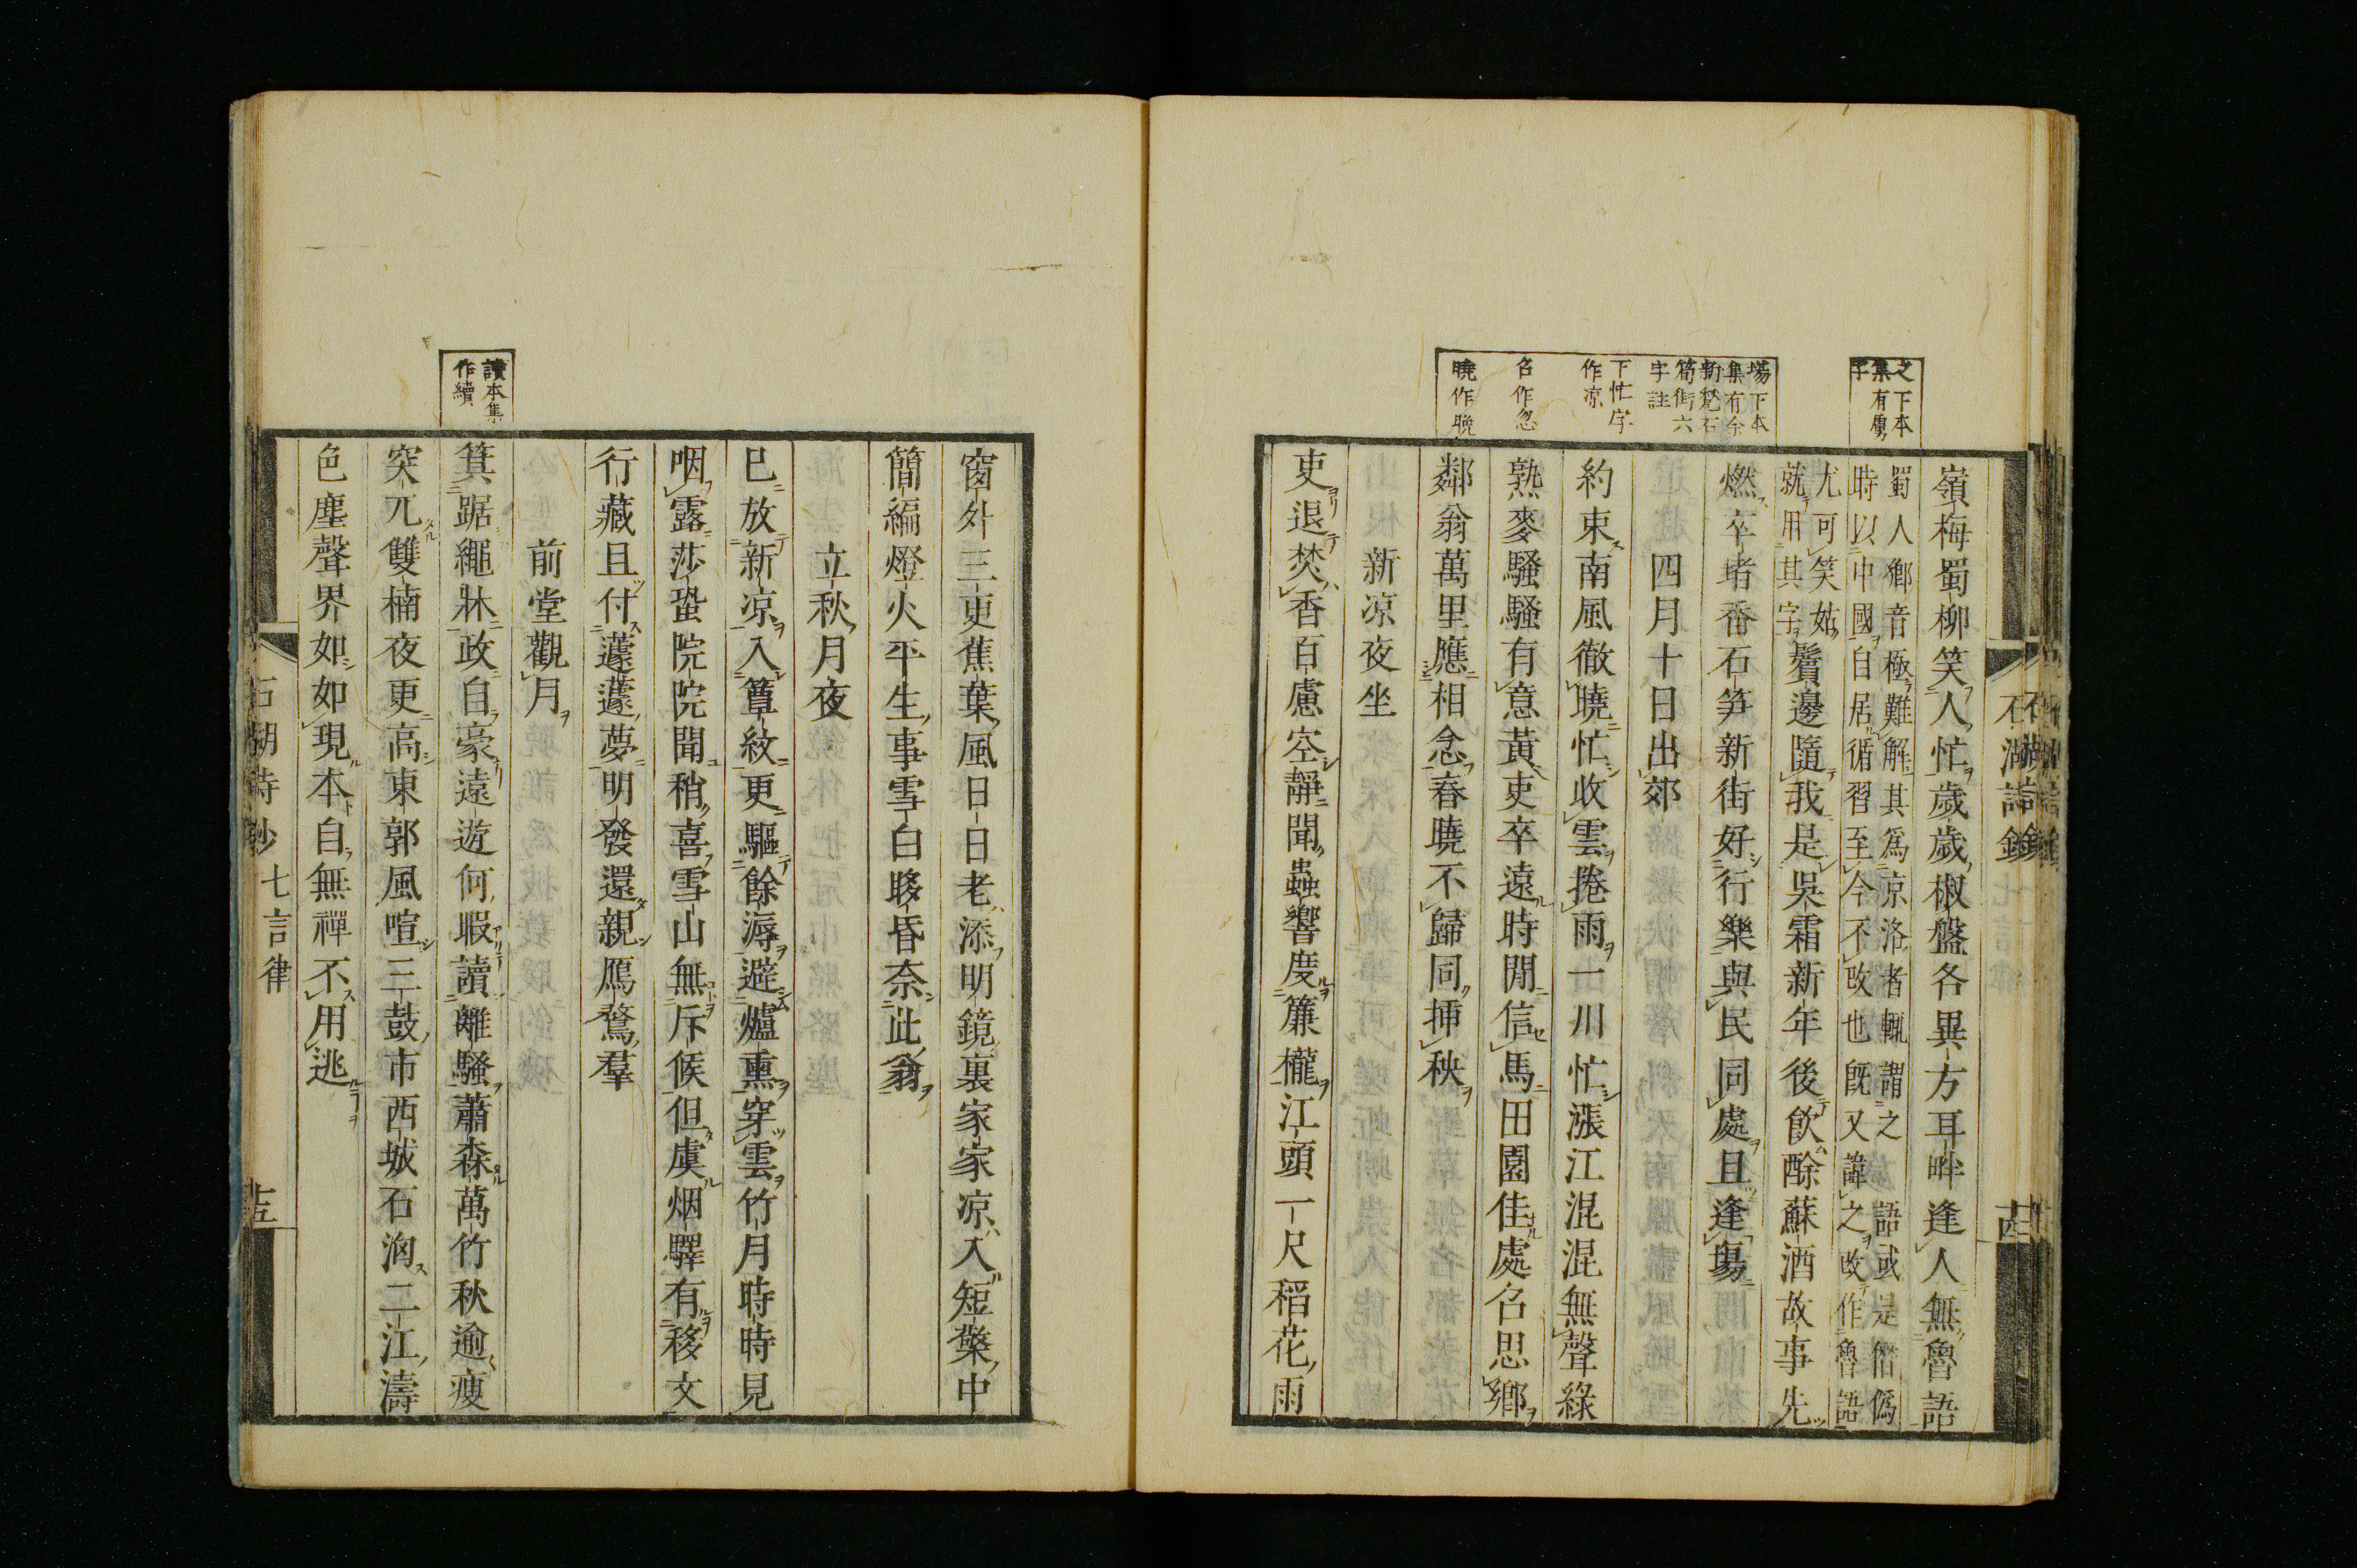 之下本
集有虜
字
場下本
集有余
新甃石
筍街六
字註
下忙字
作凉
名作忽
曉作晚
嶺梅蜀柳笑人忙歲歲椒盤各異方耳畔逢人無魯語
蜀人鄉音極難解其爲京洛者輒謂之
時以中國自居循習至今不改也既又諱之改作魯語
語或是僭僞
尤可笑姑
就用其字
鬢邊隨我是吳霜新年後飲酴蘇酒故事先
燃卒堵香石笋新街好行樂與民同處且逢場
四月十日出郊
約束南風徹曉忙收雲捲雨一川忙漲江混混無聲綠
熟麥騷騷有意黃吏卒遠時閒信馬田園佳處名思鄉
鄰翁萬里應相念春曉不歸同挿秧
新凉夜坐
吏退焚香百慮空靜聞蟲響度簾櫳江頭一尺稻花雨
石湖詩鈔
窗外三更蕉葉風日日老添明鏡裏家家凉入短檠中
簡編燈火平生事雪白眵昏奈此翁
立秋月夜
已放新凉入簟紋更驅餘溽避爐熏穿雲竹月時時見
咽露莎蛩院院聞稍喜雪山無斥候但虞烟驛有移文
行藏且付蘧蘧夢明發還親鴈鶩羣
前堂觀月
讀本集
作續
箕踞繩牀政自豪遠遊何暇讀離騷蕭森萬竹秋逾瘦
突兀雙楠夜更高東郭風喧三鼓市西城石洶二江濤
色塵聲界如如現本自無禪不用逃
石湖詩鈔 七言律
十五